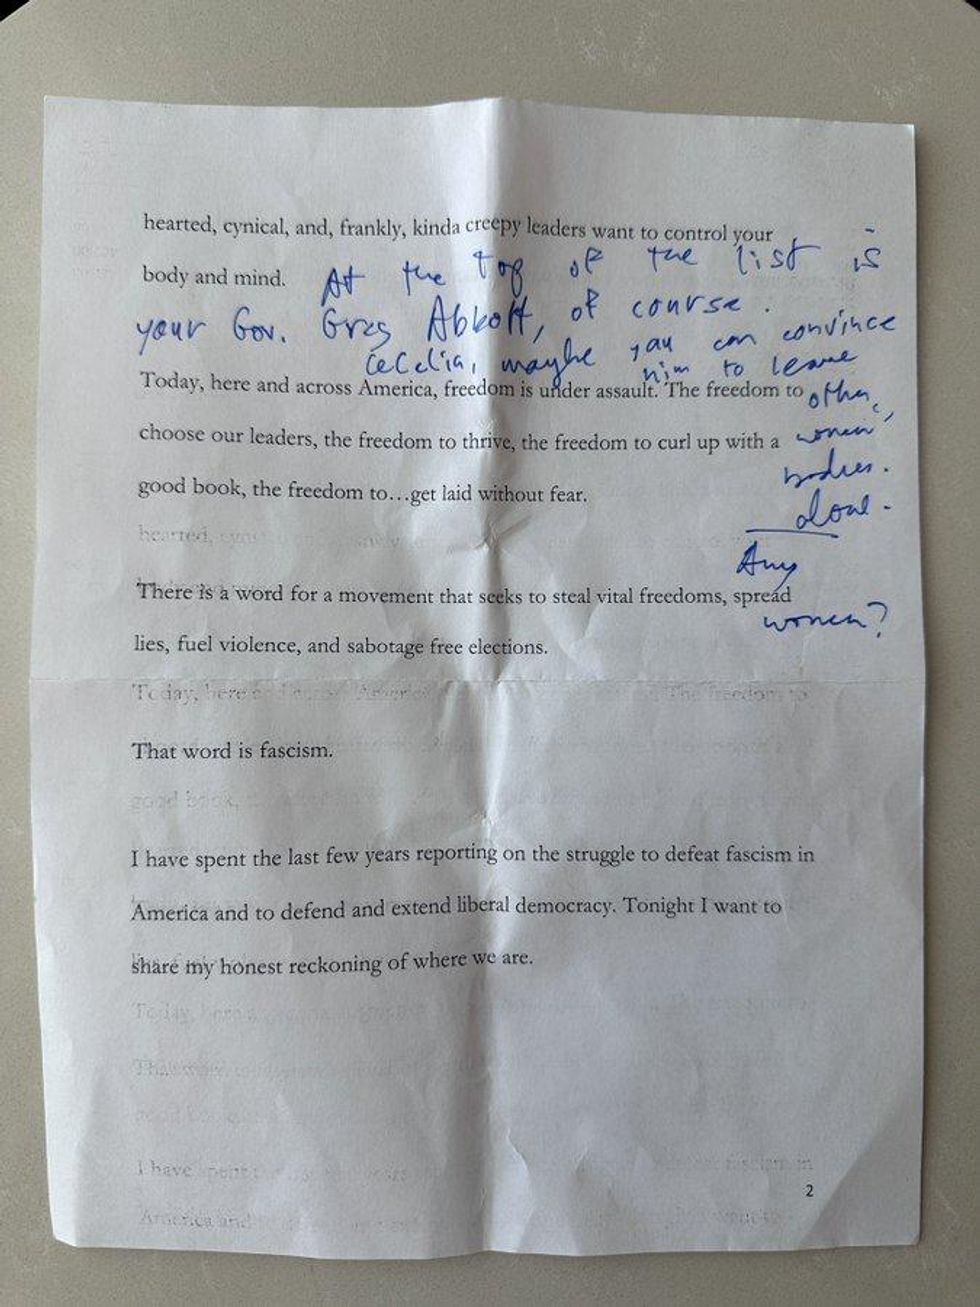 hearted, cynical, and, frankly, kinda creepy leaders want to control your
body and mind. At the top of the list is
your Gov. Greg Abbott, of course.
Cecelia, maybe you can convince
him to leave
Today, here and across America, freedom is under assault. The freedom to other
choose our leaders, the freedom to thrive, the freedom to curl up with a women's
bodies.
good book, the freedom to…get laid without fear.
alone.
Any
There is a word for a movement that seeks to steal vital freedoms, spread
women?
lies, fuel violence, and sabotage free elections.
Today, here and across America The freedom to
That word is fascism.
good book,
I have spent the last few years reporting on the struggle to defeat fascism in
America and to defend and extend liberal democracy. Tonight I want to
share my honest reckoning of where we are.
Today, here
That
I have spent fascism in
2
America and